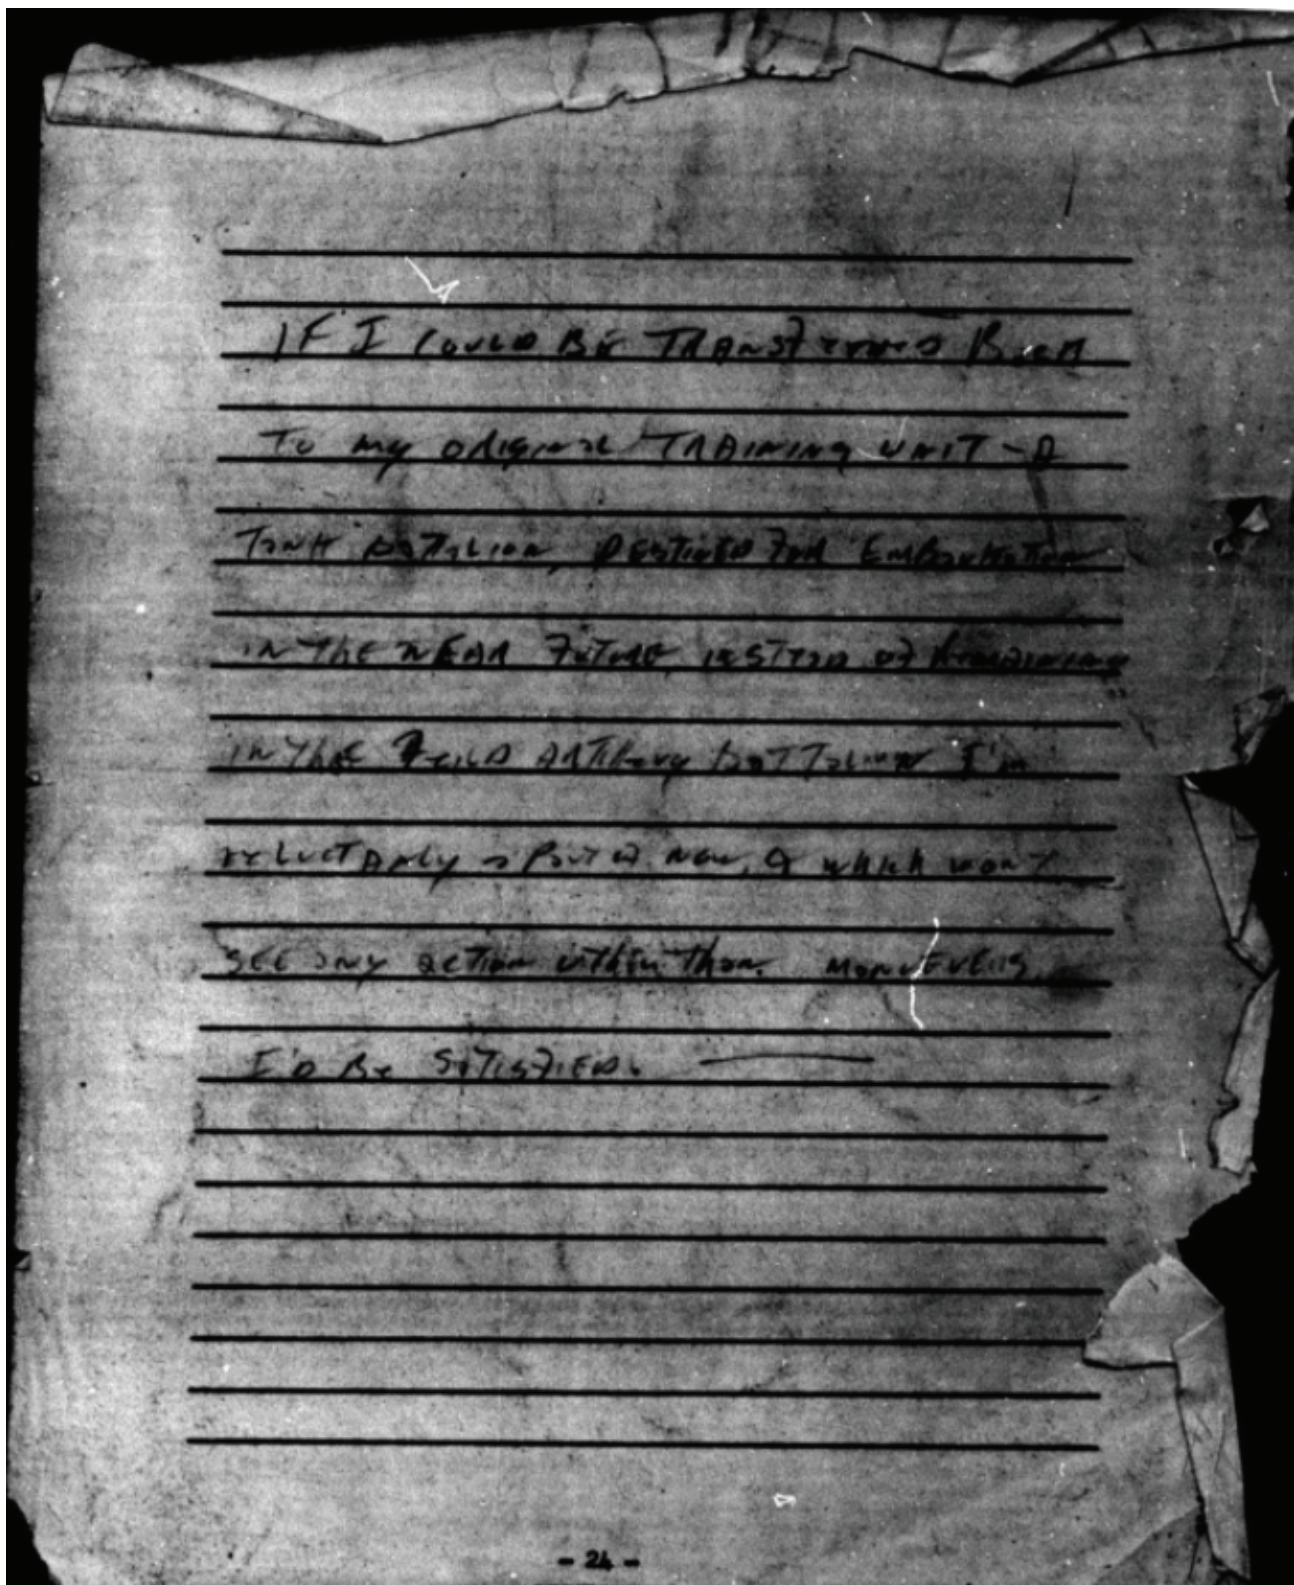 IF I COULD BE TRANSFERRED BACK
TO MY ORIGINAL TRAINING UNIT - A
TANK BATTALION, DESTINED FOR EMBARKATION
IN THE NEAR FUTURE INSTEAD OF REMAINING
IN THE FIELD ARTILLERY BATTALION I'M
RELUCTANTLY A PART OF NOW, & WHICH WON'T
SEE ANY ACTION OTHER THAN
I'D BE SATISFIED.
- 24 -